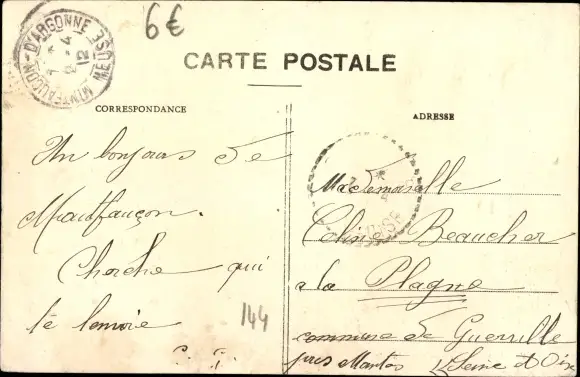 MONTFAUCON-D'ARGONNE MEUSE
8-4
12
6€
CARTE POSTALE
CORRESPONDANCE
ADRESSE
Un bonjour de
Montfaucon.
Cherche qui
te l'envoie
144
Mademoiselle
Celine Beaucher
a la Plagne
commune de Guerville
pres Mantes Seine et Oise